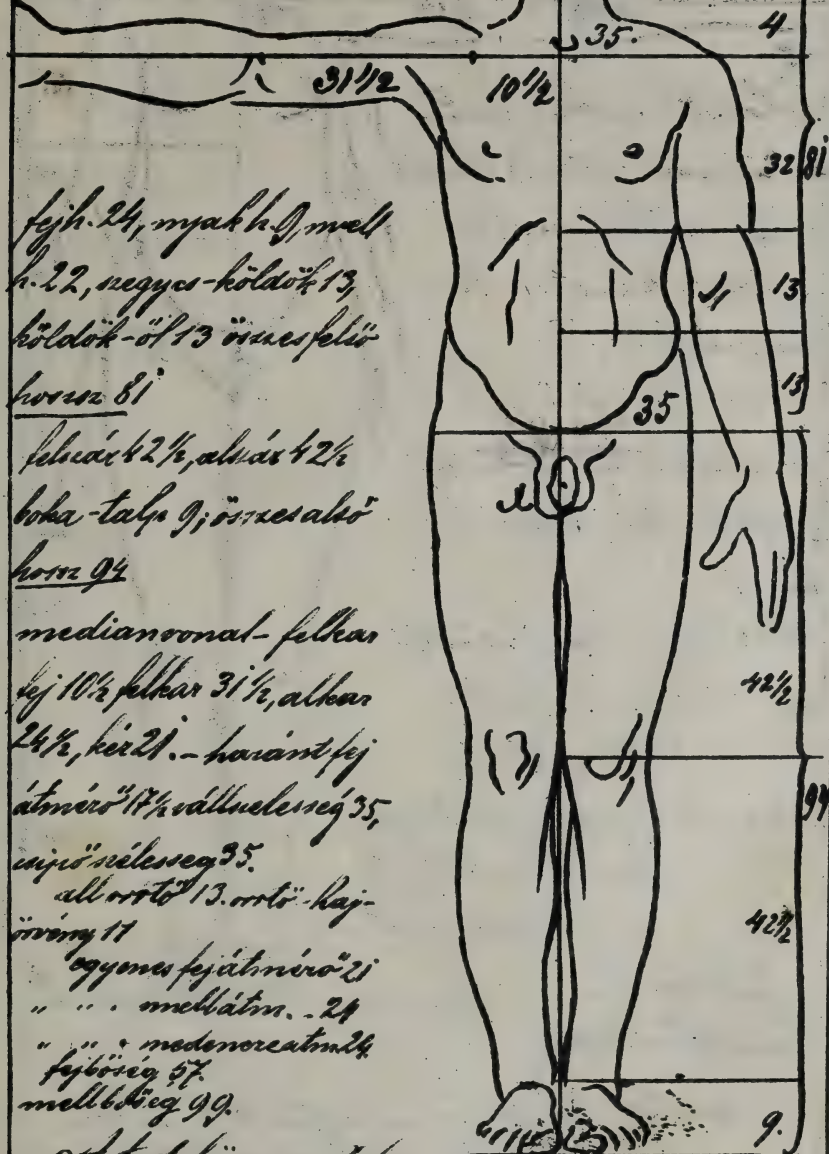 4
35.
31 1/2
10 1/2
32
81
fejh. 24, nyak h. 9, mell
h. 22, szegycs-köldök 13,
köldök-öl 13 összes felső
hossz 81
felszár 42 1/2, alszár 42 1/2
boka-talp 9; összes alsó
hossz 94
medianvonal- felkar
fej 10 1/2 felkar 31 1/2, alkar
24 1/2, kéz 21. - haránt fej
átmérő 17 1/2 vállszelesség 35,
csipő szélesseg 35.
áll orrtő 13. orrtő-haj-
örvény 11
egyenes fejátmérő 21
" " . mellátm. - 24
" " . medenczeatm. 24
fejbőség 57.
mellbőseg 99.
13
13
35
42 1/2
94
42 1/2
9.